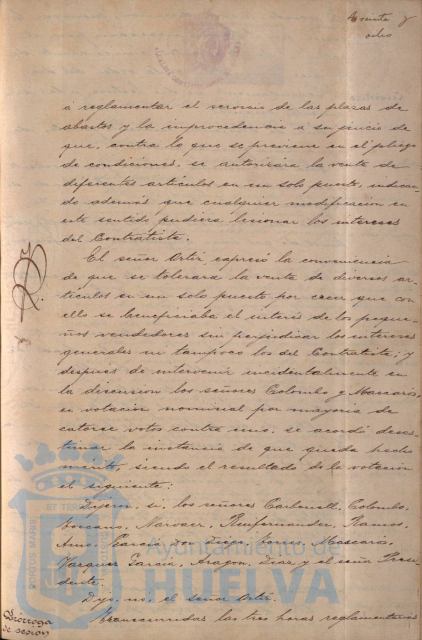 treinta y
ocho
á reglamentar el servicio de las plazas de
abastos y la improcedencia á su juicio de
que, contra lo que se previene en el pliego
de condiciones, se autorizára la venta de
diferentes artículos en un solo puesto, indican-
do además que cualquier modificación en
este sentido pudiera lesionar los intereses
del Contratista.
El señor Ortiz expresó la conveniencia
de que se tolerara la venta de diversos ar-
tículos en un solo puesto por creer que con
ello se beneficiaba el interés de los peque-
ños vendedores sin perjudicar los intereses
generales ni tampoco los del Contratista; y
despues de intervenir incidentalmente en
la discusion los señores Colombo y Mascarós,
en votación nominal por mayoria de
catorce votos contra uno, se acordó deses-
timar la instancia de que queda hecho
mérito, siendo el resultado de la votación
el siguiente:
Dijeron, si, los señores Carbonell, Colombo,
Narvaez, Ramos,
García Don Diego, Mascarós,
Vazquez García, Aragon, Diaz y el señor Presi-
dente.
Dijo, no, el señor Ortiz.
Prórroga
de sesión
Transcurridas las tres horas reglamentarias
Ayuntamiento de
HUELVA
PORTUS MARIS
ET TERRAE